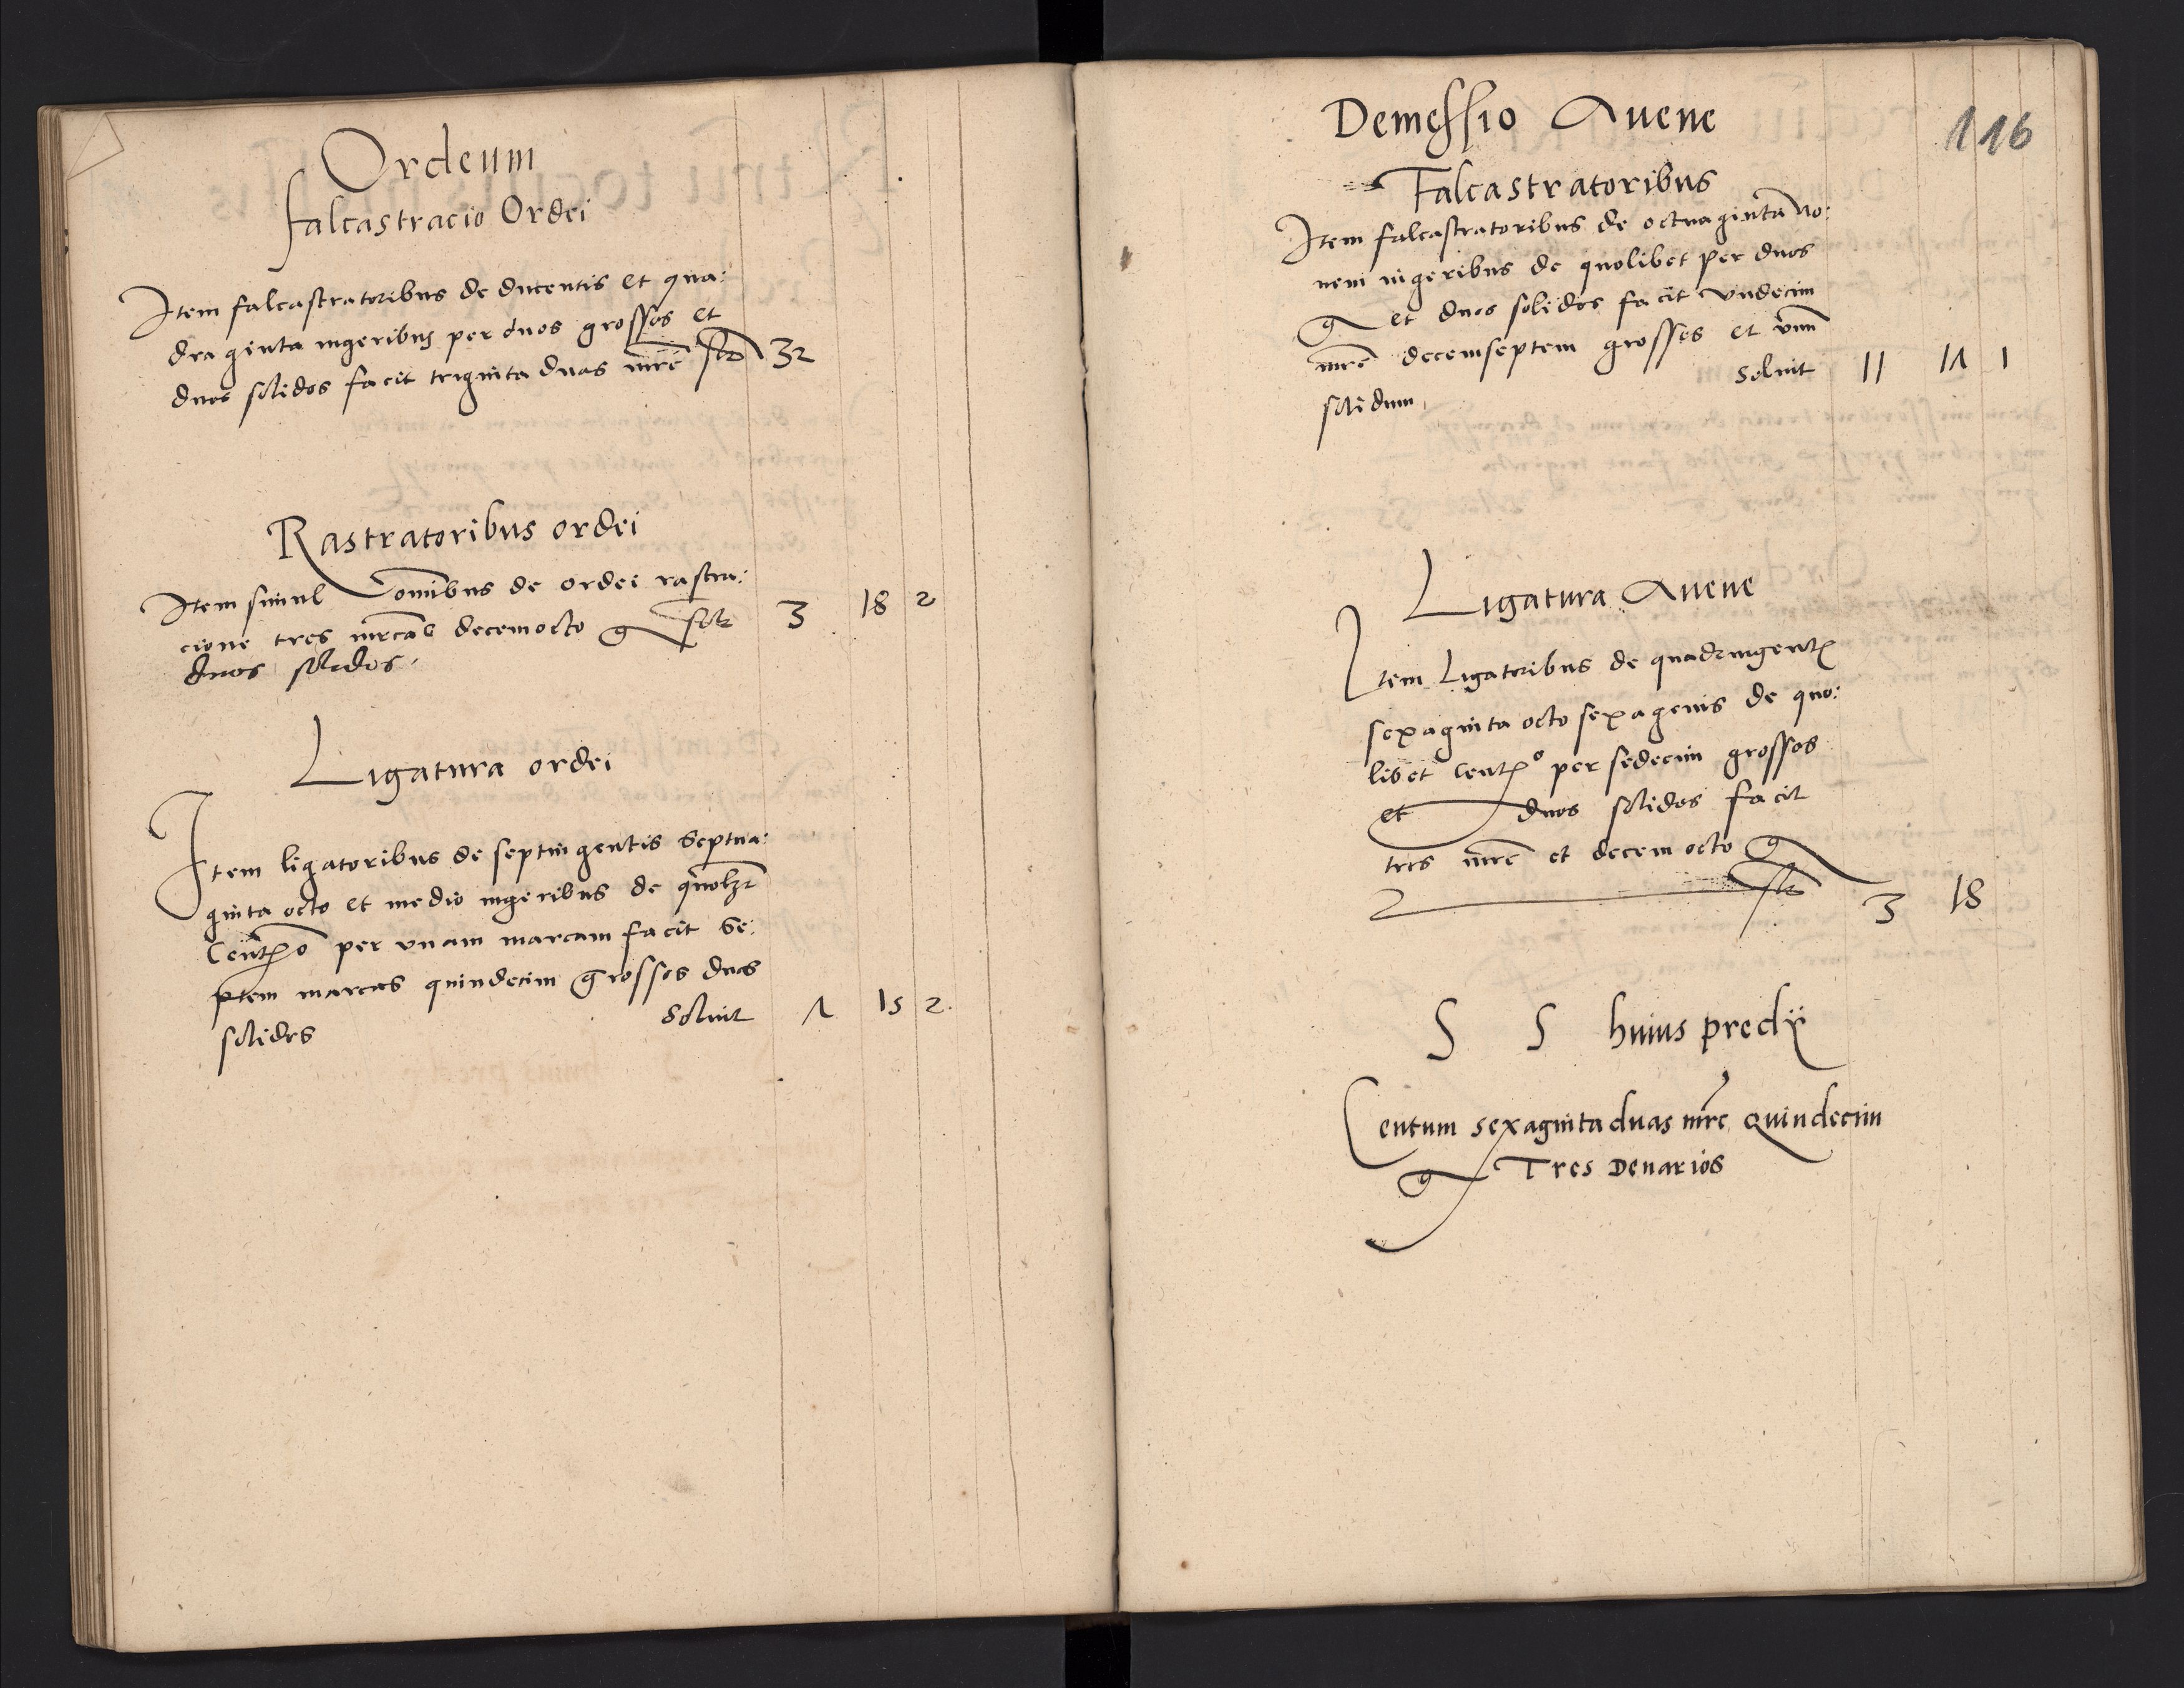 Ordeum
falcastracio Ordei
Item falcastratoribus de ducentis et qua:
draginta iugeribus per duos grossos et
duos solidos facit triginta duas mrc̄ solt 32
Rastratoribus ordei
Item simul omibus de ordei rastra:
cione tres mrcas decemocto g solt 3 18 2
duos solidos.
Ligatura ordei
Item ligatoribus de septingentis septua:
ginta octo et medio iugeribus de quolzt
Centro per vnam marcam facit se:
ptem marcas quindecim grossos duos
solidos soluit 7 15 2.
116
Demessio Auene
Falcastratoribus
Item falcastratoribus de octuaginta no:
nem iugeribus de quolibet per duos
g et duos solidos facit vndecim
mrc̄ decemseptem grossos et vnū
solidum soluit 11 17 1
Ligatura Auene
Item Ligatoribus de quadringent
sexaginta octo sexagenis de quo:
libet Centº per sedecim grossos
et duos solidos facit
tres mrc̄ et decem octo g
solt 3 18
S S huius predij
Centum sexaginta duas mrc Quindecim
g Tres Denarios